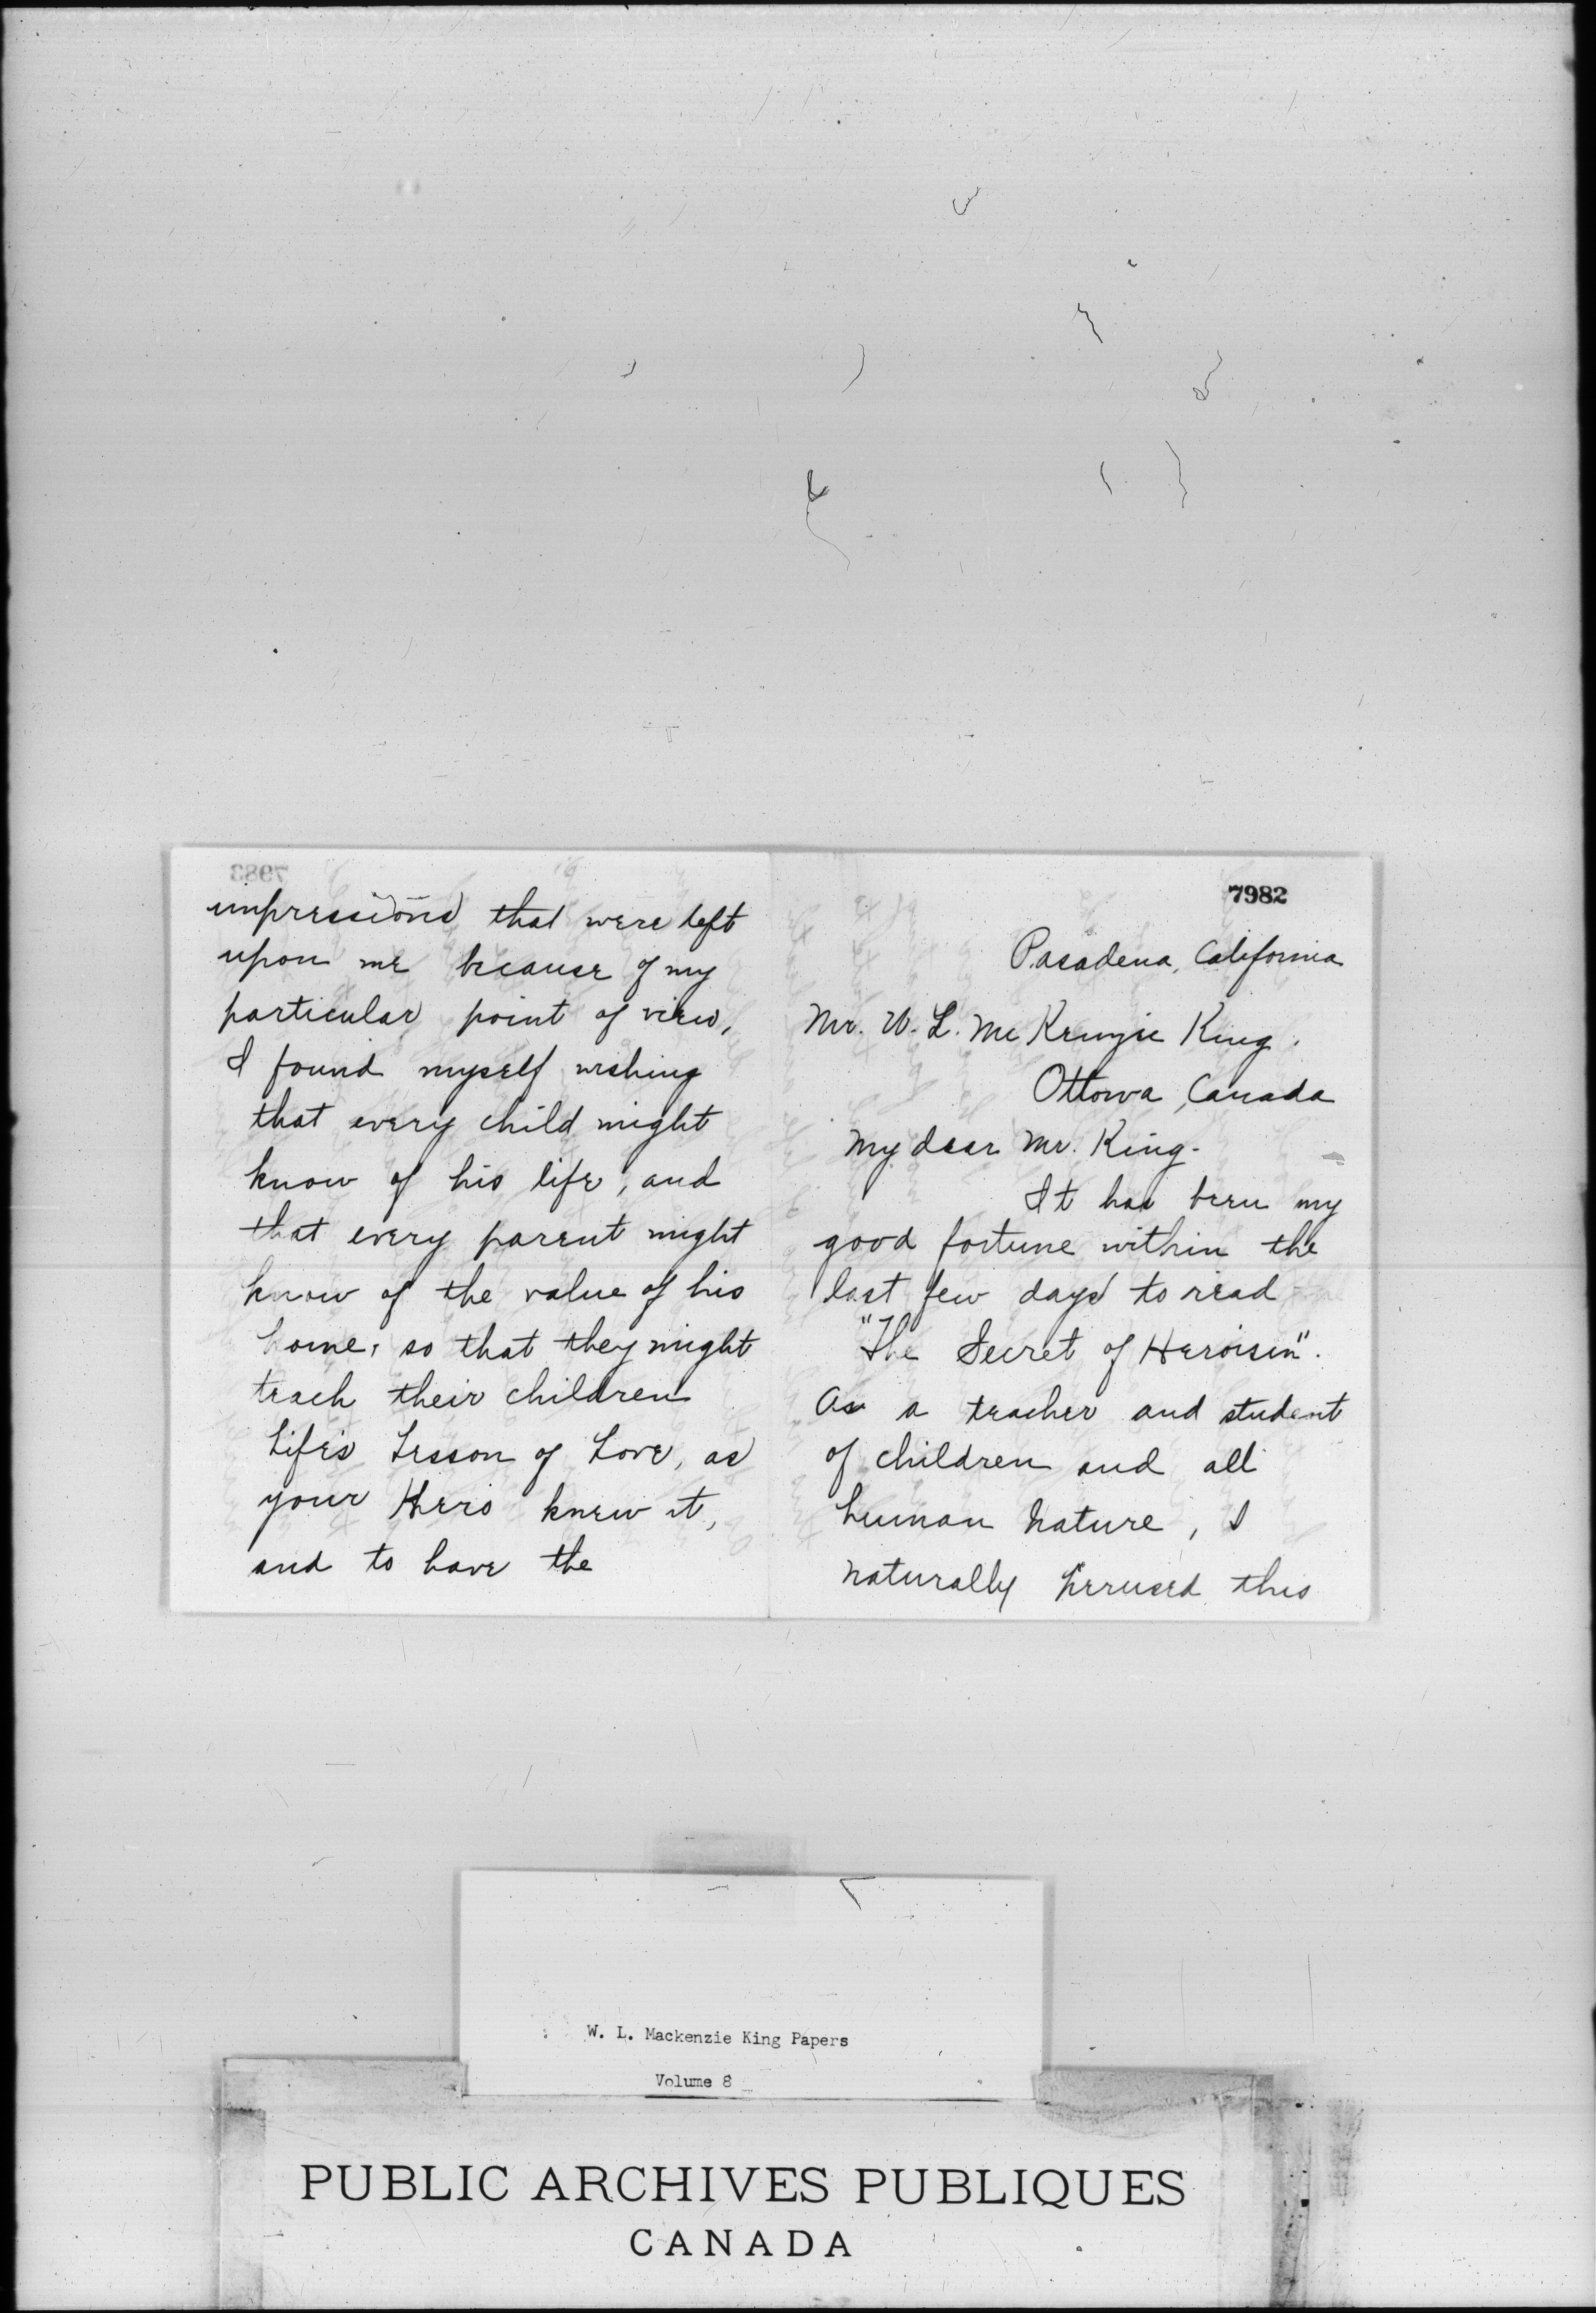 7983
impressions that were left
upon me because of my
particular point of view,
I found myself wishing
that every child might
know of his life, and
that every parent might
know of the value of his
home, so that they might
teach their children
Life's Lesson of Love, as
your Hero knew it,
and to have the
7982
Pasadena, California
Mr. W. L. McKenzie King.
Ottowa, Canada
My dear Mr. King.
It has been my
good fortune within the
last few days to read
"The Secret of Heroism".
As a teacher and student
of children and all
human nature, I
naturally perused this
W. L. Mackenzie King Papers
Volume 8
PUBLIC ARCHIVES PUBLIQUES
CANADA